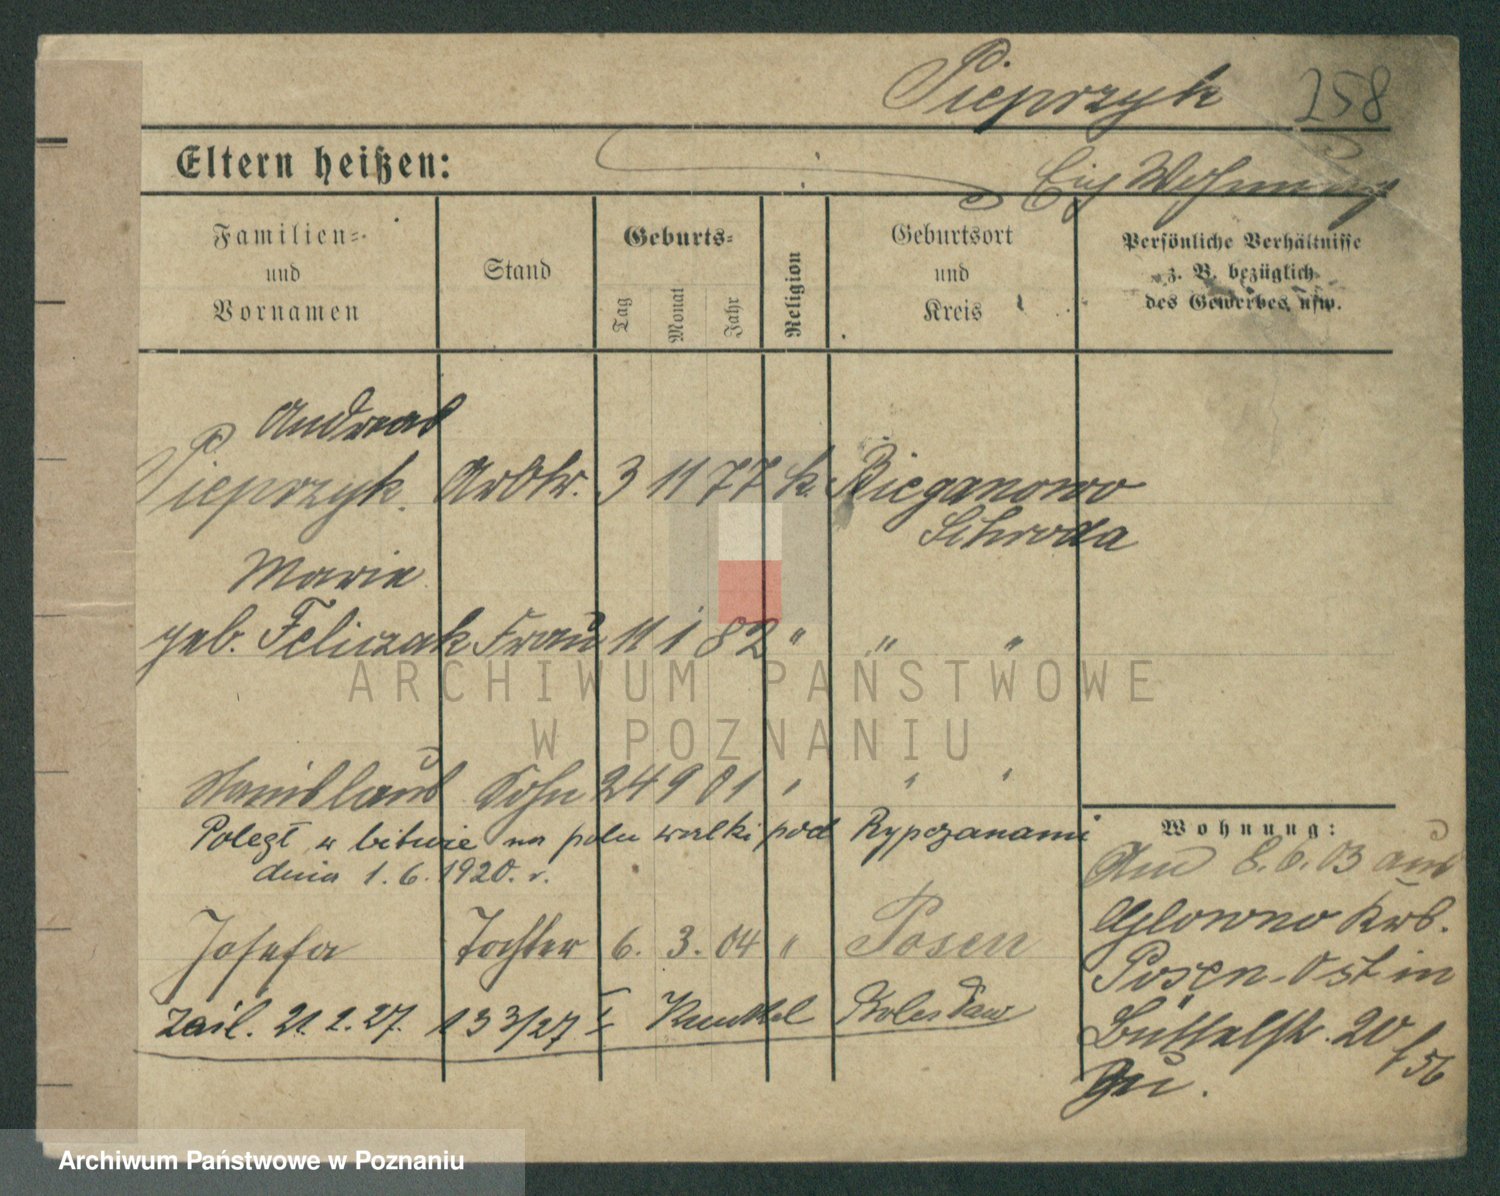 Pieprzyk 258
Eltern heißen:
Familien- und Vornamen
Stand
Geburts-
Tag
Monat
Jahr
Religion
Geburtsort und Kreis
Persönliche Verhältnisse
z. B. bezüglich
des Gewerbes usw.
Andreas
Pieprzyk. Arbtr. 3 11 77 k. Bieganowo
Schroda
Marie
geb. Feliczak Frau 11 1 82 " " "
Stanislaus Sohn 24 9 01 " " "
Poległ w bitwie na polu walki pod Rypczanami
dnia 1.6.1920. r.
Josefa Tochter 6. 3. 04 " Posen
zaśl. 21.2.27. 133/27 I Kunkel Bolesław
Wohnung:
Am 8.6.03 aus
Glowno Krs.
Posen-Ost in
20
ARCHIWUM PAŃSTWOWE
W POZNANIU
Archiwum Państwowe w Poznaniu